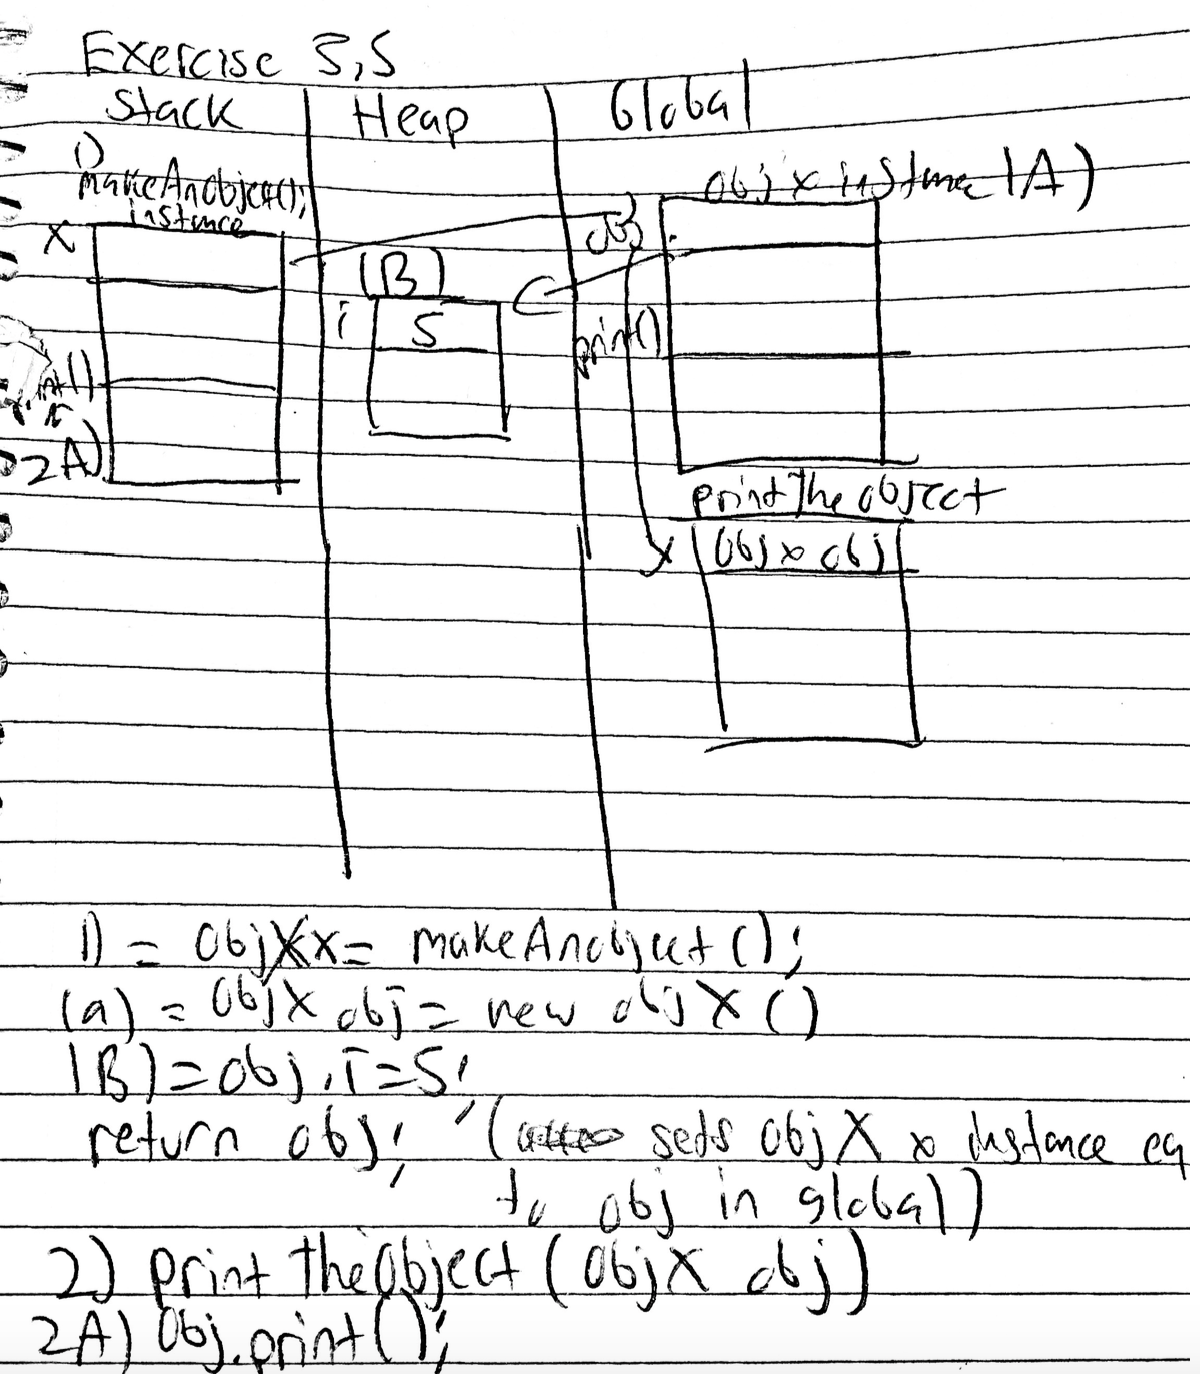 Exercise 3,5
Stack Heap Global
1)
makeAnobject();
instance
obj x instance 1A)
x
obj
1B)
i 5
print()
2A)
print The object
x obj x obj
1) = ObjX x = makeAnobject();
1a) = ObjX obj = new objX()
1B) = obj.i=5;
return obj; ( sets objX x instance eq
to obj in global)
2) print TheObject (ObjX obj)
2A) Obj.print();